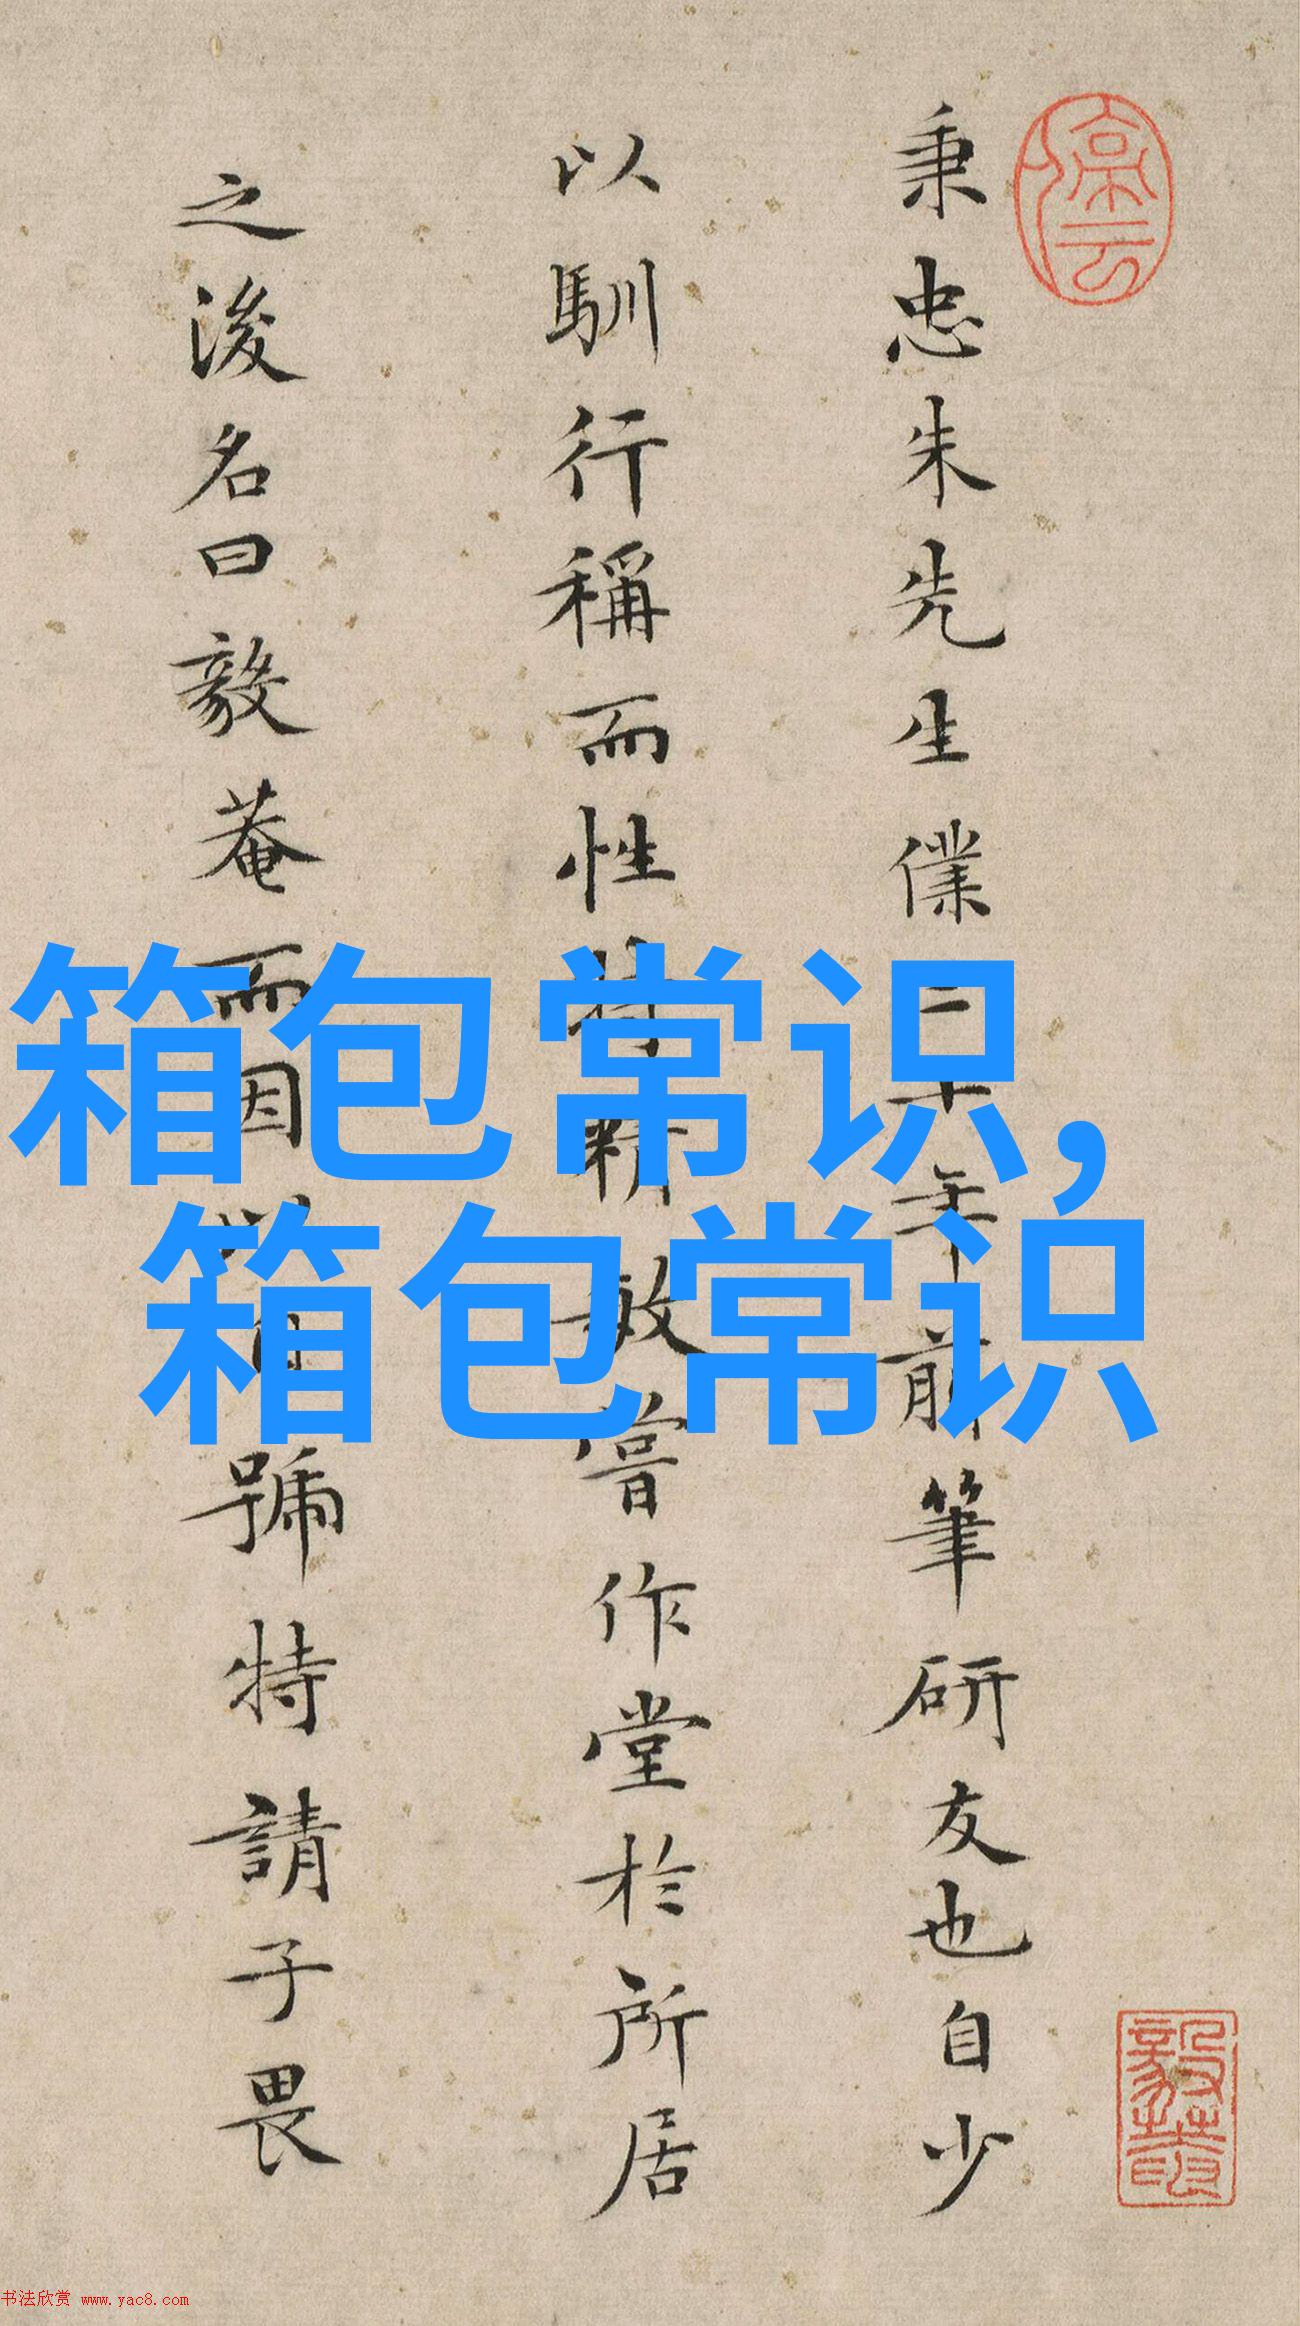 秉忠朱先生僕二十年前筆研友也自少
以馴行稱而性特精敏嘗作堂於所居
之後名曰毅菴而因以自號特請予畏
箱包常识,
箱包常识
书法欣赏 www.yac8.com